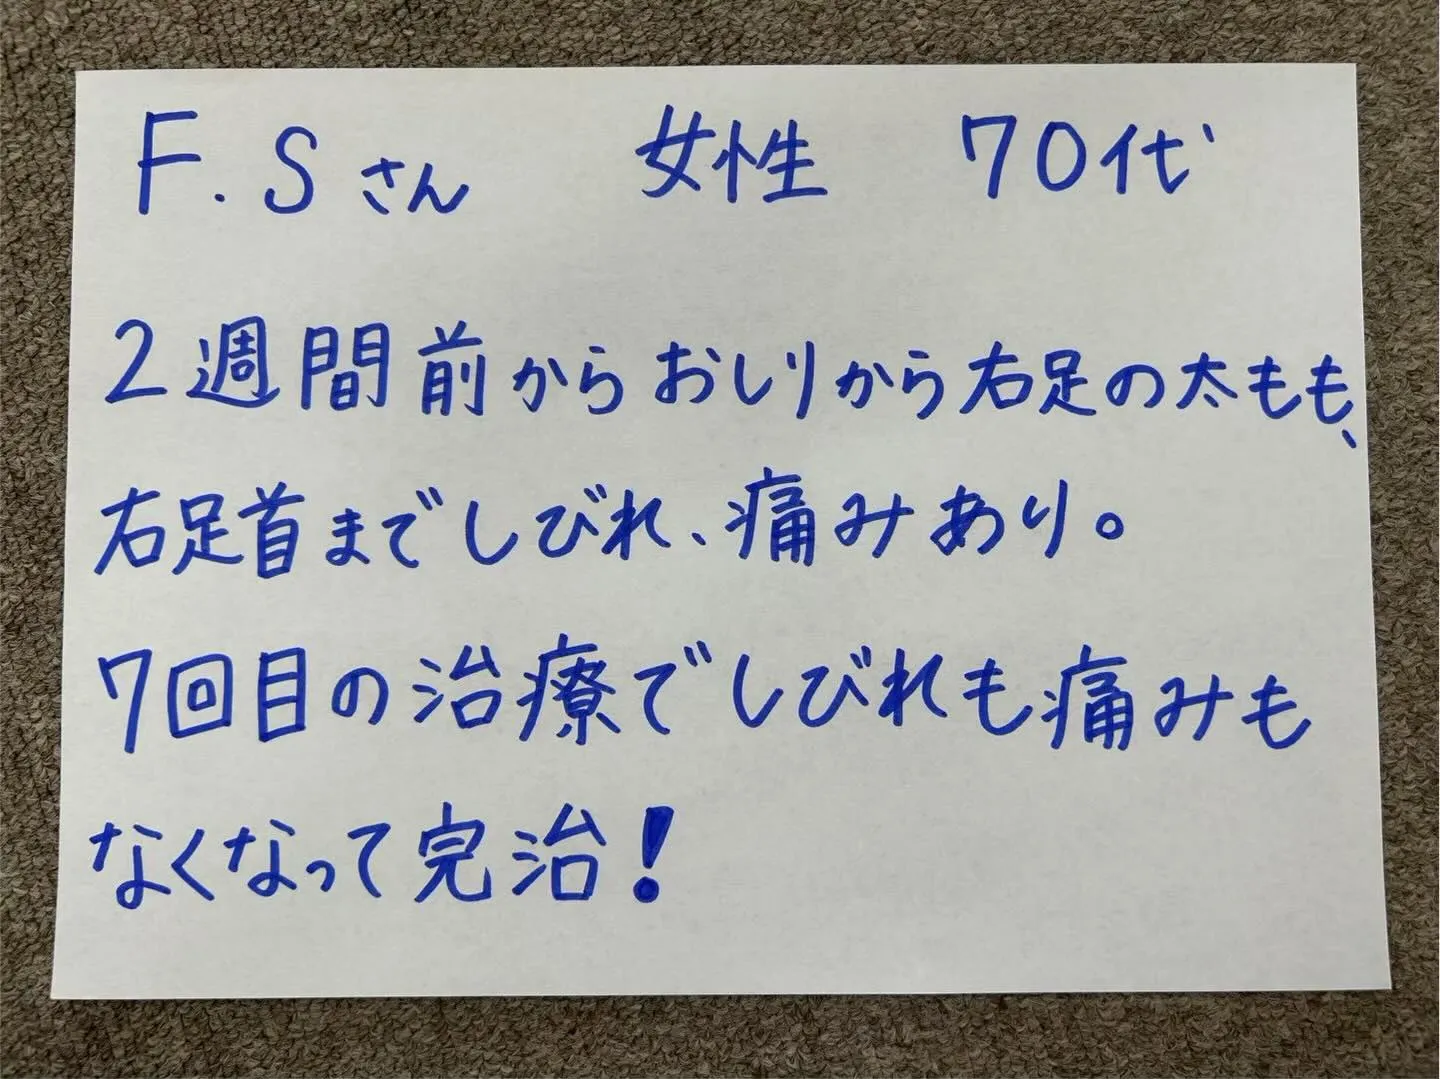 F.Sさん 女性 70代
2週間前からおしりから右足の太もも、
右足首までしびれ、痛みあり。
7回目の治療でしびれも痛みも
なくなって完治!